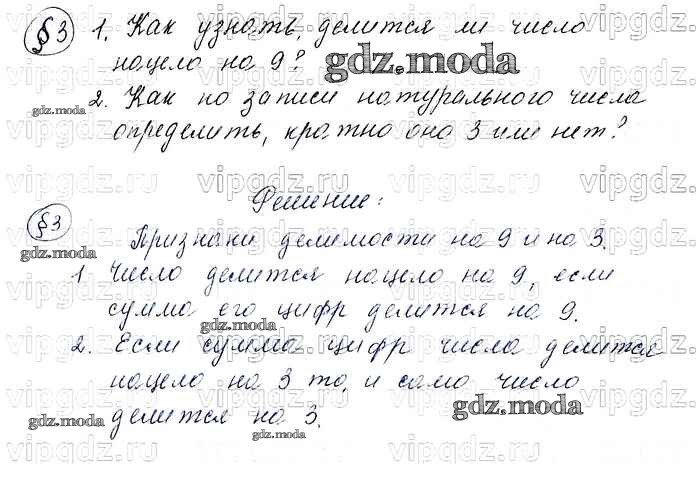 §3 1. Как узнать, делится ли число
нацело на 9?
2. Как по записи натурального числа
определить, кратно оно 3 или нет?
Решение:
§3
Признаки делимости на 9 и на 3.
1. Число делится нацело на 9, если
сумма его цифр делится на 9.
2. Если сумма цифр числа делится
нацело на 3 то, и само число
делится на 3.
gdz.moda
gdz.moda
gdz.moda
gdz.moda
gdz.moda
gdz.moda
gdz.moda
vipgdz.ru